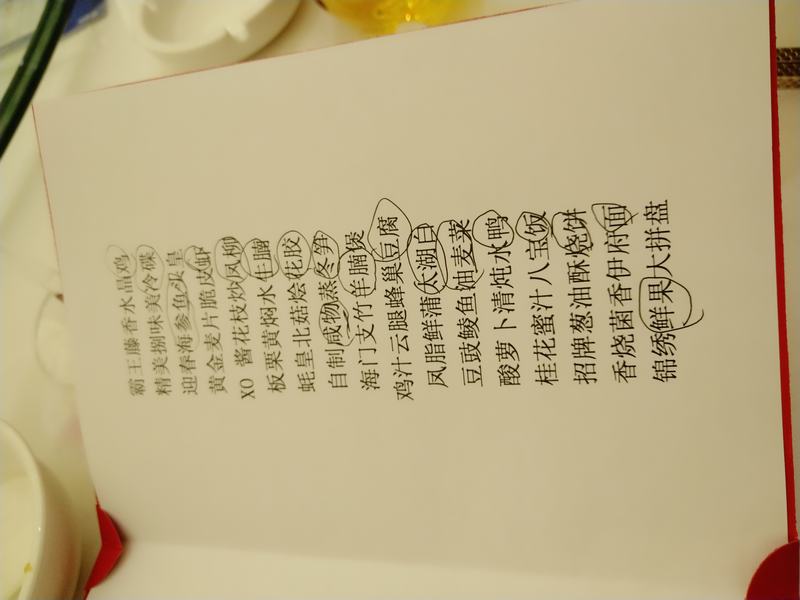 霸王藤香水晶鸡
精美捌味美冷碟
迎春海参鱼头皇
黄金麦片脆皮虾
XO 酱花枝炒凤柳
板栗黄焖水佳腩
蚝皇北菇烩花胶
自制咸物蒸冬笋
海门支竹羊腩煲
鸡汁云腿蜂巢豆腐
凤脂鲜蒲太湖白
豆豉鲮鱼油麦菜
酸萝卜清炖水鸭
桂花蜜汁八宝饭
招牌葱油酥烧饼
香烧菌香伊府面
锦绣鲜果大拼盘